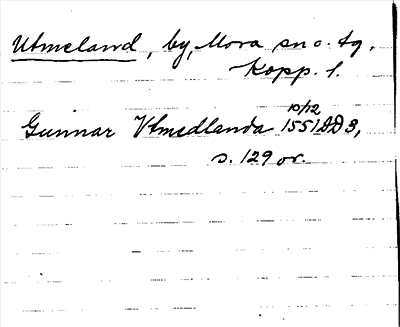 Utmeland, by, Mora sn o. tg,
Kopp. l.
10/12
Gunnar Vtmedlanda 1551 DD 3,
s. 129 or.